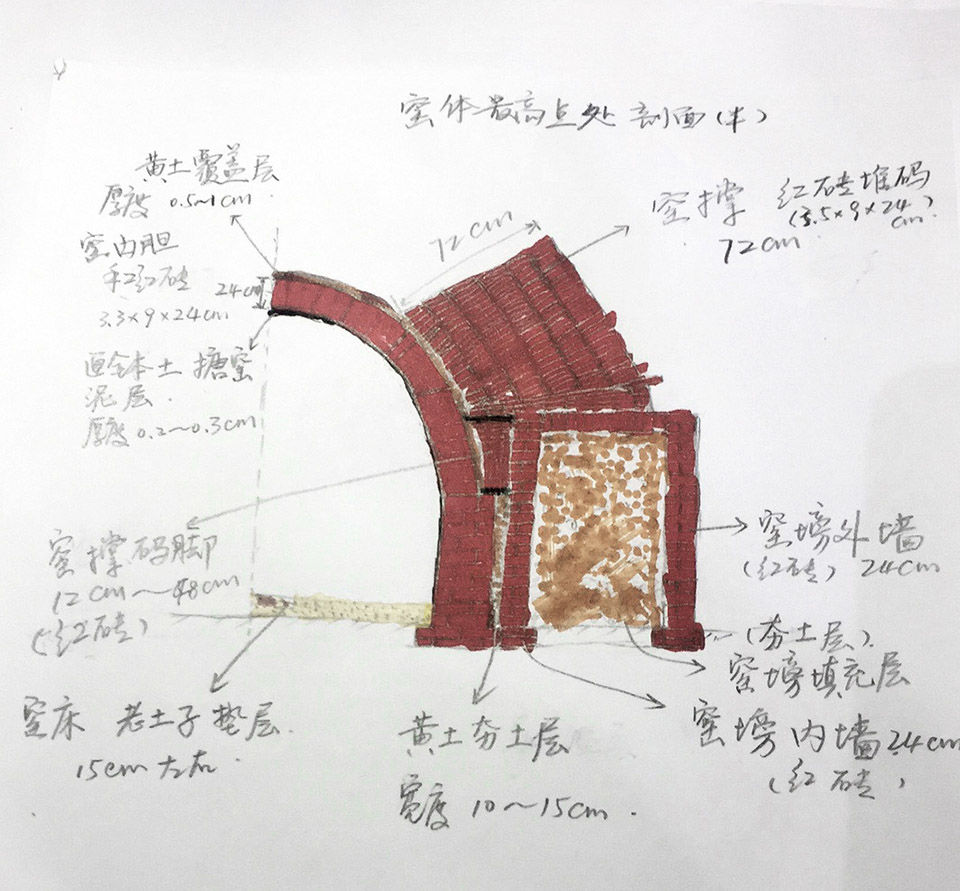 窑体最高点处剖面(半)
黄土覆盖层
厚度 0.5~1cm
窑内胆
红砖
3.3×9×24cm
24cm
搪窑
泥层.
厚度 0.2~0.3cm
72cm
窑撑 红砖堆码
(3.5×9×24
cm)
72cm
窑撑码脚
12cm~48cm
(红砖)
窑床 老土子垫层.
15cm左右
黄土夯土层
宽度 10~15cm.
窑塝外墙
(红砖) 24cm
(夯土层)
窑塝填充层
窑塝内墙24cm
(红砖)